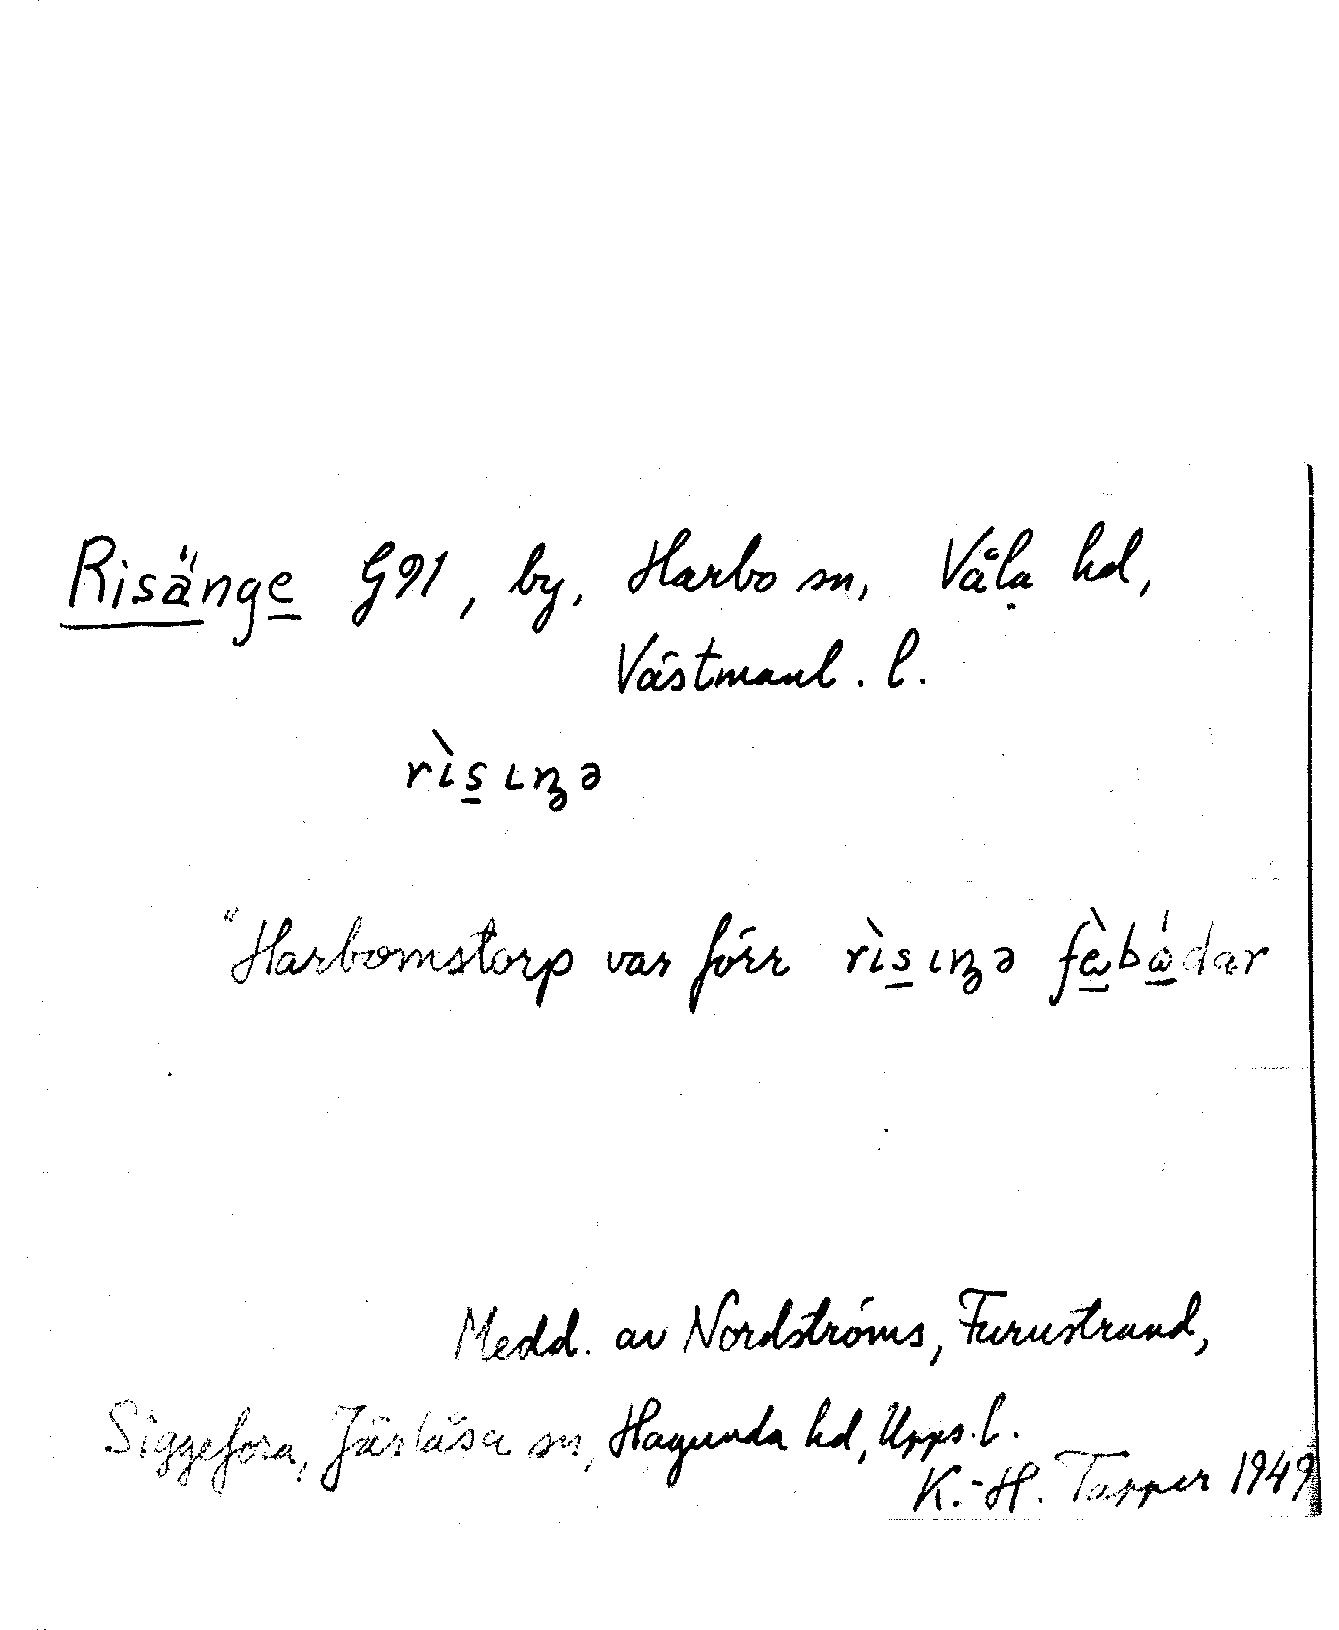 Risänge G91, by, Harbo sn, Våla hd,
Västmanl. l.
rìs̲ɩŋə
"Harbomstorp var förr rìs̲ɩŋə fὼ̲bώ̲dar
Medd. av Nordströms, Furustrand,
Siggefora, Järlåsa sn, Hagunda hd, Upps. l.
K.-H. Tapper 1949